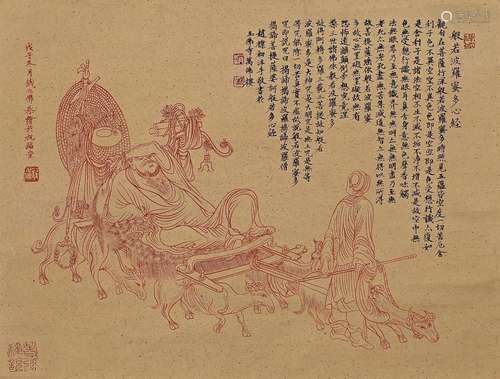 般若波羅蜜多心經
觀自在菩薩行深般若波羅蜜多時照見五蘊皆空度一切苦厄舍
利子色不異空空不異色色即是空空即是色受想行識亦復如
是舍利子是諸法空相不生不滅不垢不淨不增不減是故空中無
色無受想行識無眼耳鼻舌身意無色聲香味觸
法無眼界乃至無意識界無無明亦無無明盡乃至無
老死亦無老死盡無苦集滅道無智亦無得以無所得
故菩提薩埵依般若波羅蜜
多故心無罣礙無罣礙故無有
恐怖遠離顛倒夢想究竟涅
槃三世諸佛依般若波羅蜜多
故得阿耨多羅三藐三菩提故知般若
波羅蜜多是大神咒是大明咒是無上咒是無等
等咒能除一切苦真實不虛故說般若波羅蜜多
咒即說咒曰 揭諦揭諦波羅揭諦波羅僧
揭諦菩提薩婆訶般若心經
趙樸初沐手敬書於
玉佛寺萬佛樓